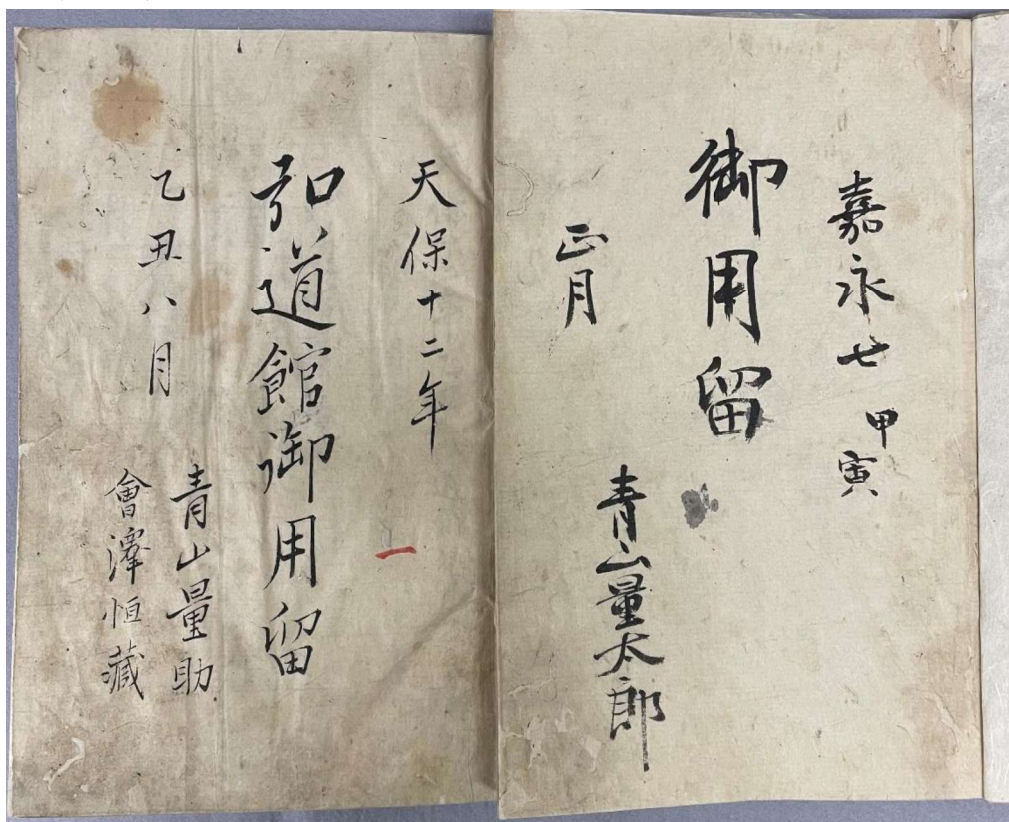 嘉永七 甲寅
御用留
正月
青山量太郎
天保十二年
一
弘道館御用留
乙丑八月
青山量助
會澤恒藏